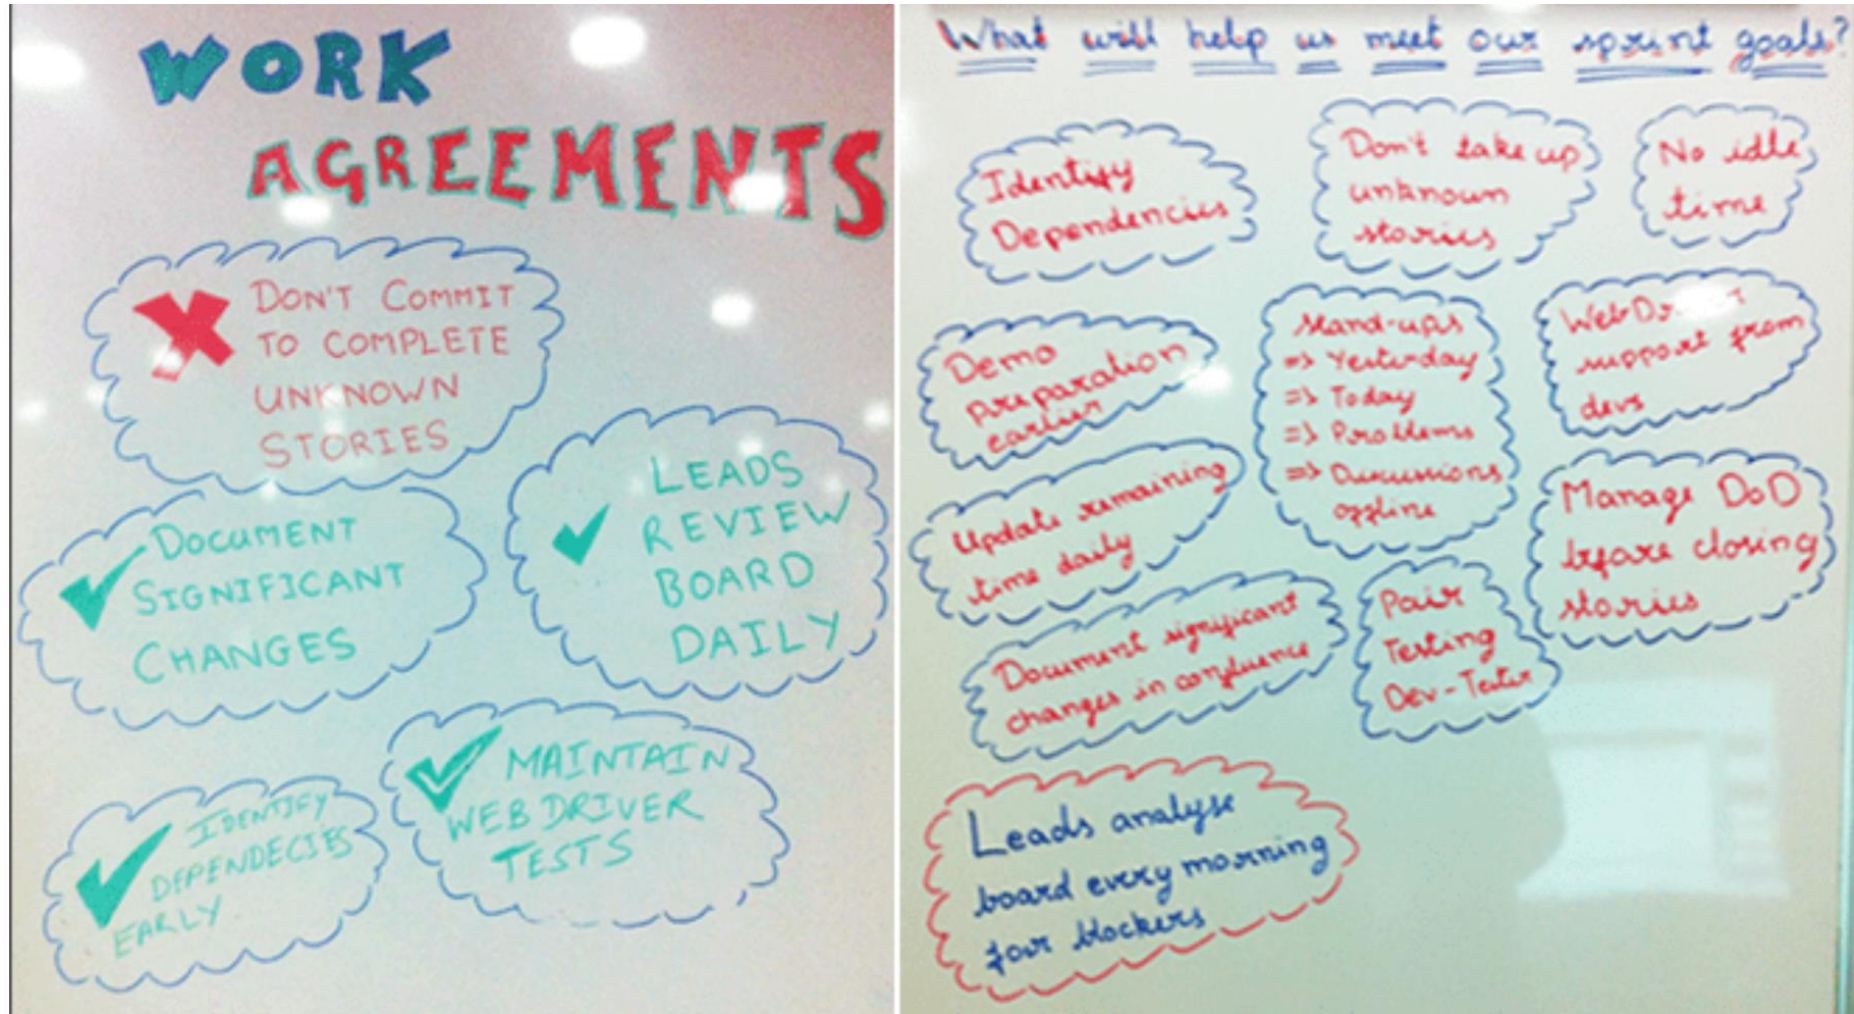 WORK
AGREEMENTS
DON'T COMMIT
TO COMPLETE
UNKNOWN
STORIES
DOCUMENT
SIGNIFICANT
CHANGES
LEADS
REVIEW
BOARD
DAILY
IDENTIFY
DEPENDECIES
EARLY
MAINTAIN
WEBDRIVER
TESTS
What will help us meet our sprint goals?
Identify
Dependencies
Don't take up
unknown
stories
No idle
time
Demo
preparation
earlier
Stand-ups
=> Yesterday
=> Today
=> Problems
=> Discussions
offline
support from
devs
Update remaining
time daily
Manage DoD
before closing
stories
Document significant
changes in confluence
Pair
Testing
Dev-Tester
Leads analyse
board every morning
for blockers